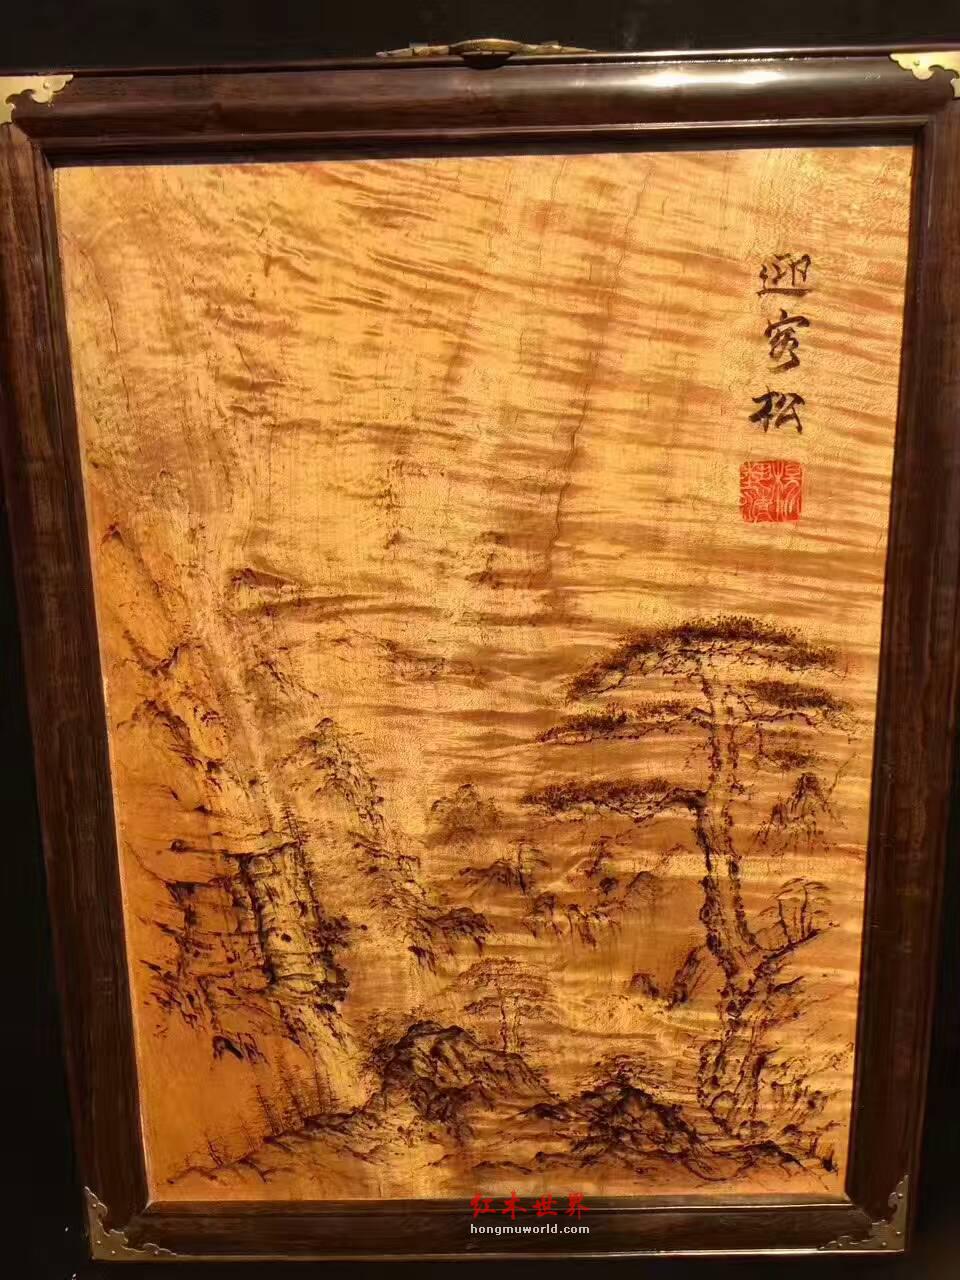 迎客松
红木世界
hongmuworld.com